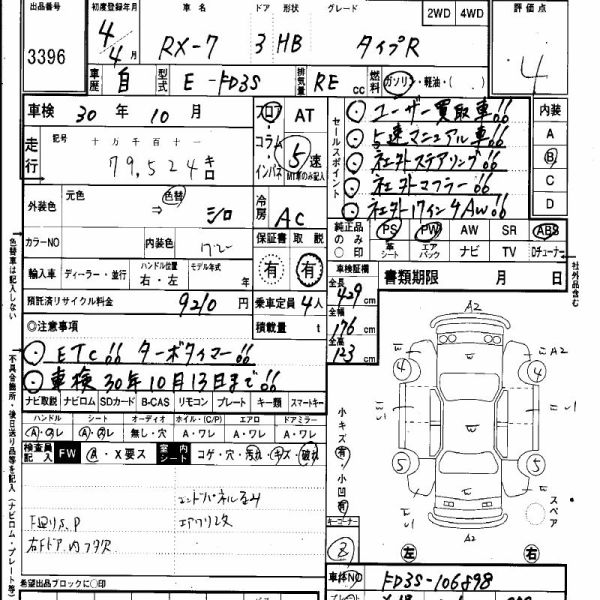 出品番号 初度登録年月 車名 ドア 形状 グレード 2WD 4WD 評価点
3396 4年4月 RX-7 3 HB タイプR 4
車歴 自 型式 E-FD3S 排気量 RE cc 燃料 ガソリン・軽油・( )
車検 30年10月 フロア コラム インパネ AT 5速 MT車のみ記入
走行 記号 十万千百十一
79,524キロ
セールスポイント
ユーザー買取車!!
5速マニュアル車!!
社外ステアリング!!
社外マフラー!!
社外17インチAW!!
内装
A
B
C
D
外装色 元色 ⇒ 色替 シロ
冷房 AC
カラーNO 内装色
保証書 取説
有 有
純正品のみ○印 PS PW AW SR ABS
革シート エアバック ナビ TV Dチューナー
社外品含む
輸入車 ディーラー・並行 ハンドル位置 右・左 モデル年式 年
車検証欄 書類期限 月 日
預託済リサイクル料金 9210円 乗車定員 4人
積載量 t
全長 429cm
全幅 176cm
全高 123cm
◎注意事項
ETC!! ターボタイマー!!
車検30年10月13日まで!!
ナビ取説 ナビロム SDカード B-CAS リモコン プレート キー類 スマートキー
ハンドル シート オーディオ ホイル・(C/P) エアロ ドアミラー
A・ワレ A・ワレ 無し・穴 A・ワレ A・ワレ A・ワレ
検査員記入 FW A・X要ス 室内 シート コゲ・穴・汚れ・キズ・破れ
色替車は記入しない
不具合箇所・後日送り品等を記入(ナビロム・プレート等)
小キズ 有 ・小凹 有
キーコーナー
A2
A2
A2
4 4
5 5
左 右
スペア
希望出品ブロックに○印
車体NO FD3S-106898